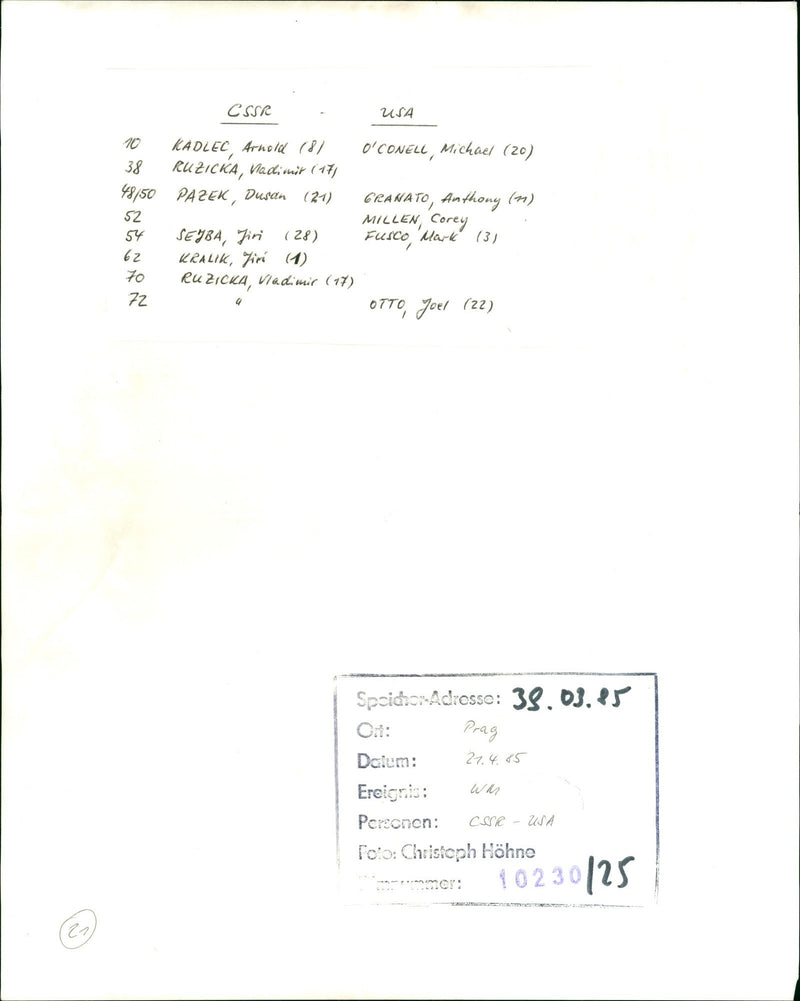 CSSR - USA
10 KADLEC, Arnold (8) O'CONELL, Michael (20)
38 RUZICKA, Vladimir (17)
48/50 PAZEK, Dusan (21) GRANATO, Anthony (11)
52 MILLEN, Corey
54 SEJBA, Jiri (28) FUSCO, Mark (3)
62 KRALIK, Jiri (1)
70 RUZICKA, Vladimir (17)
72 " OTTO, Joel (22)
Speicher-Adresse: 38.03.85
Ort: Prag
Datum: 21.4.85
Ereignis: WM
Personen: CSSR - USA
Foto: Christoph Höhne
10230/25
21